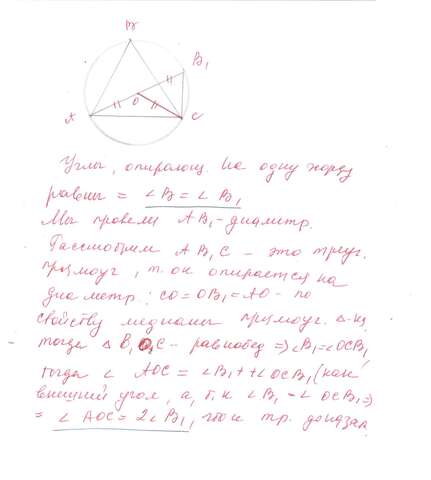 B
B₁
O
A
C
Углы, опирающ. на одну хорду
равны = ∠B = ∠B₁
Мы провели AB₁ - диаметр.
Рассмотрим AB₁C - это треуг.
прямоуг, т. он опирается на
диаметр; CO = OB₁ = AO - по
свойству медианы прямоуг. Δ-ка,
тогда Δ B₁OC - равнобед => ∠B₁=∠OCB₁
тогда ∠ AOC = ∠B₁ + +∠OCB₁ (как
внешний угол, а, т.к ∠B₁ = ∠OCB₁ =>
= ∠ AOC = 2∠B₁, что и тр. доказат